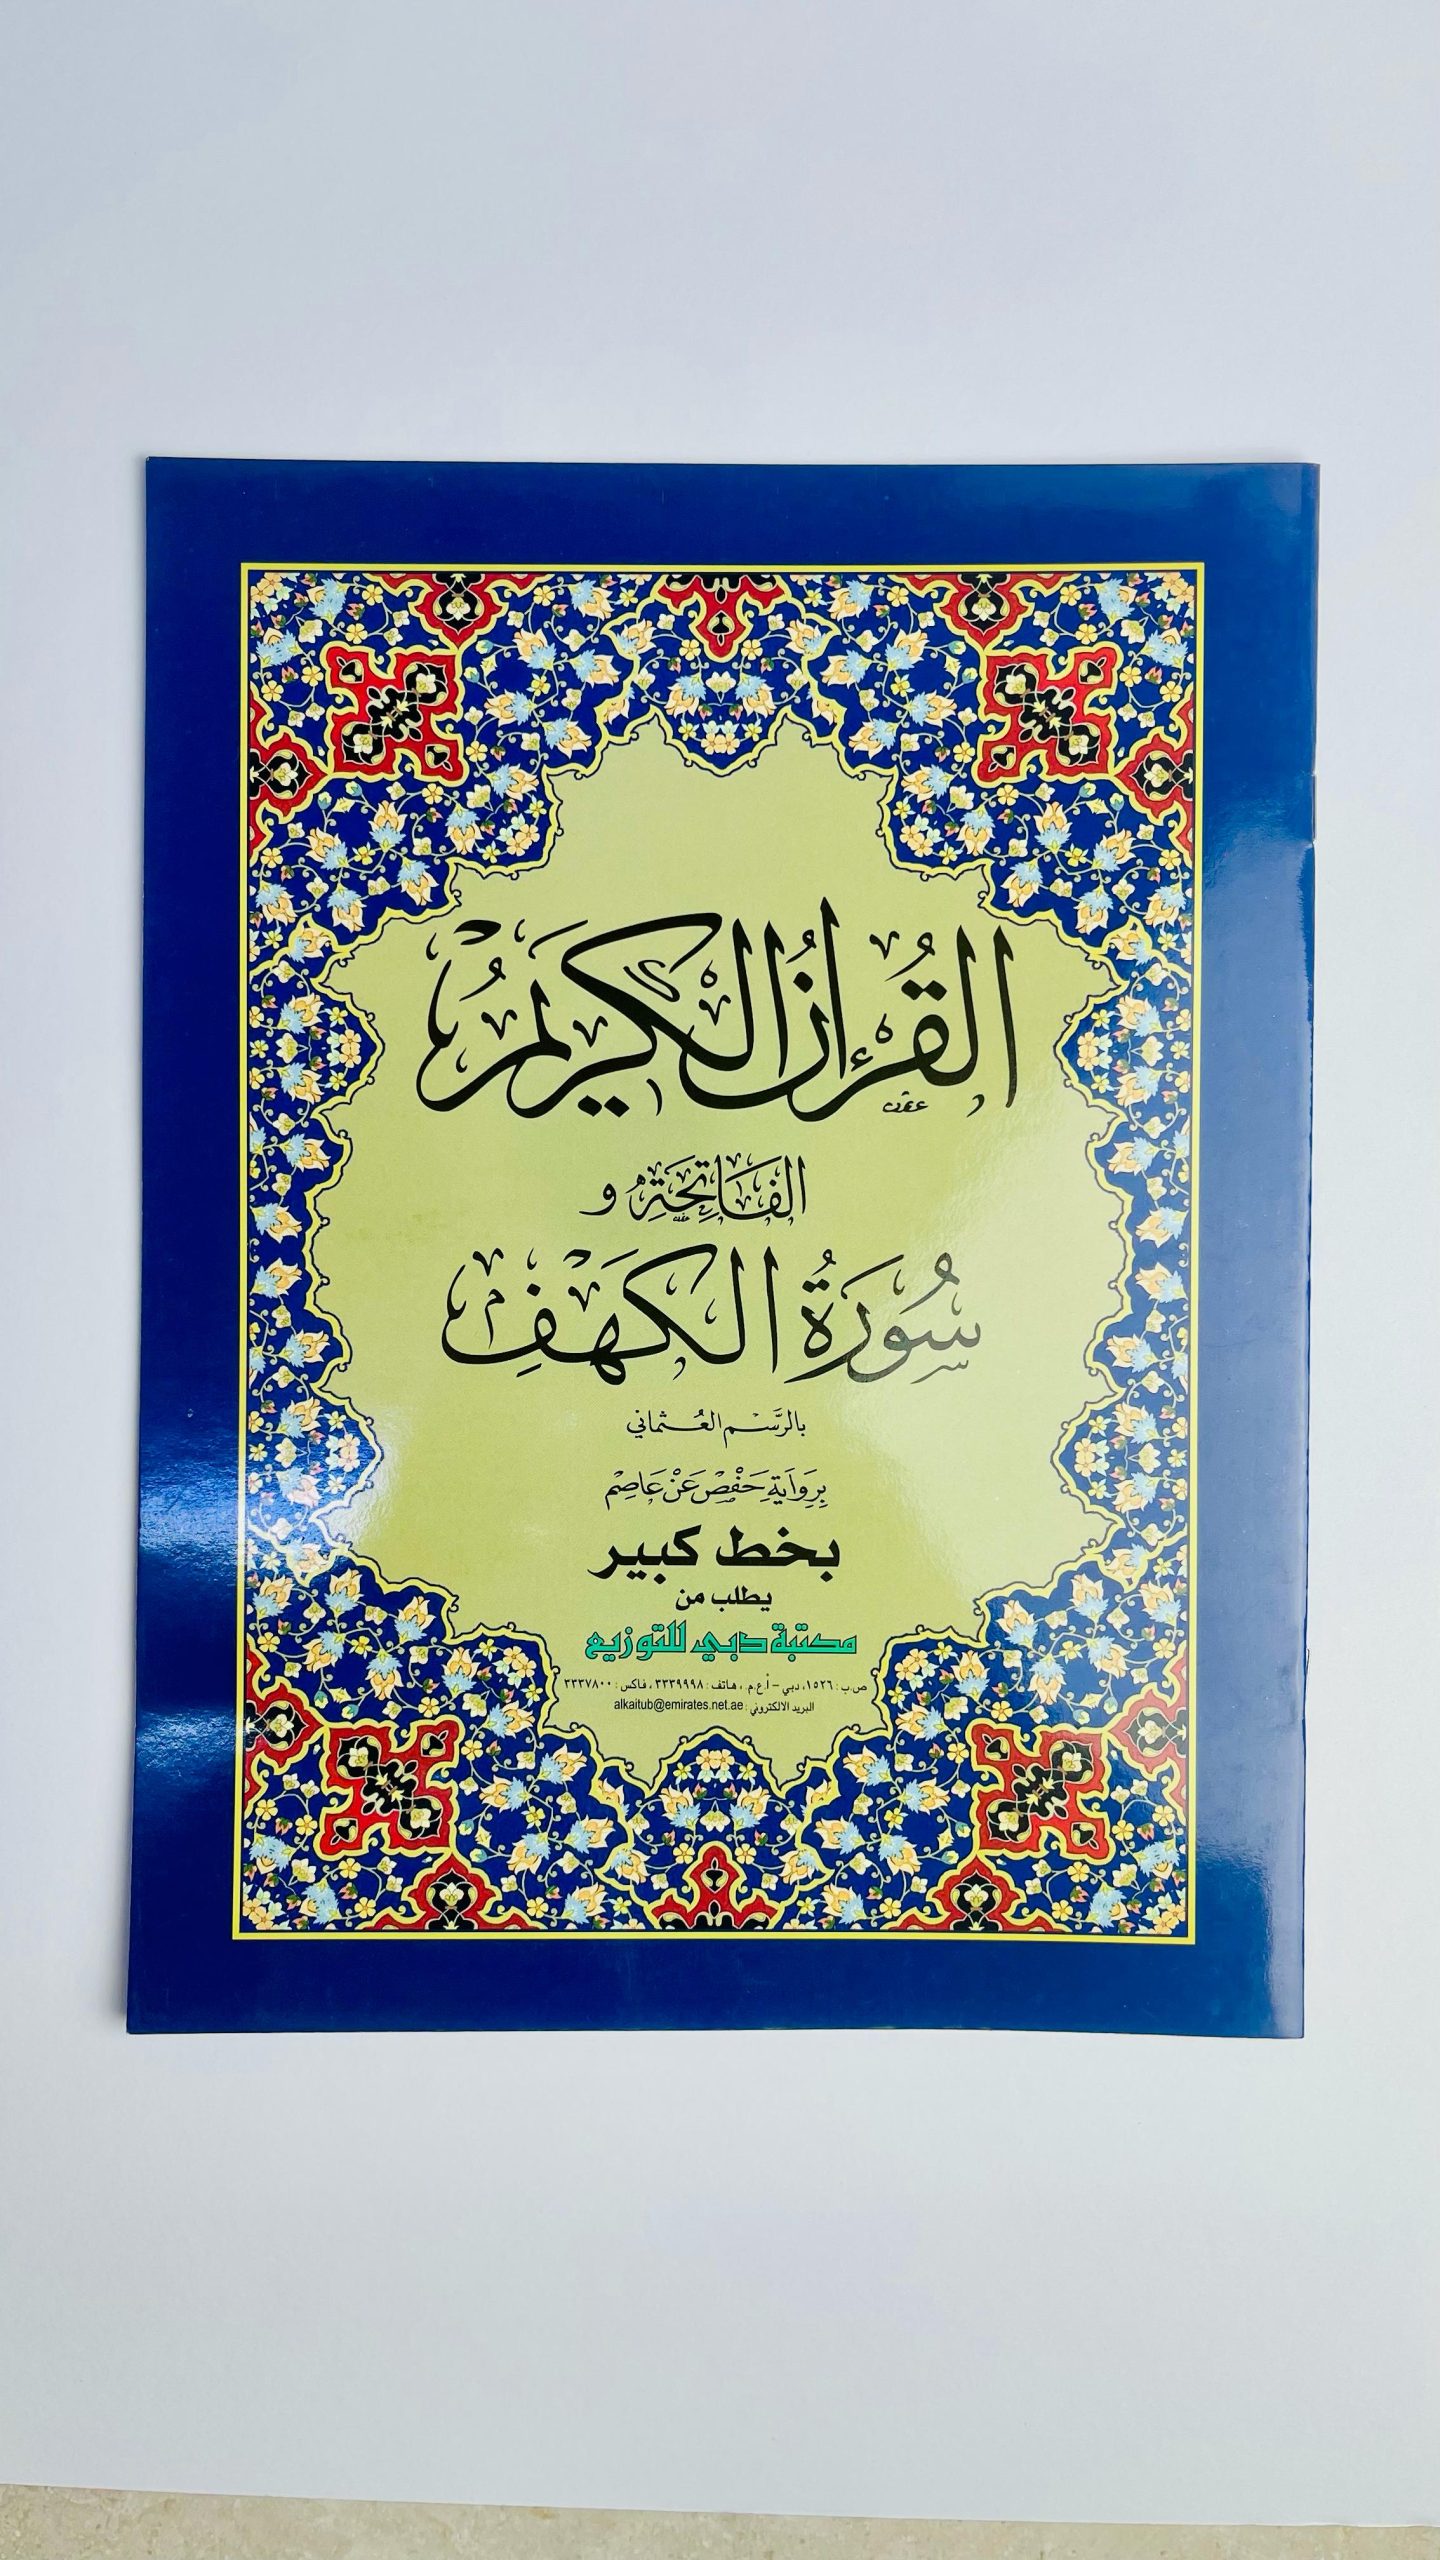 القُرْءَانُ الْكَرِيمُ
الفَاتِحَةِ و
سُورَةُ الْكَهْفِ
بالرَّسْمِ العُثماني
بِرِوَايَةِ حَفْصْ عَنْ عَاصِمْ
بخط كبير
يطلب من
مكتبة دبي للتوزيع
ص.ب : ١٥٢٦، دبي - أ.ع.م. ، هاتف : ٣٣٣٩٩٩٨ ، فاكس : ٣٣٣٧٨٠٠
البريد الالكتروني : alkaitub@emirates.net.ae